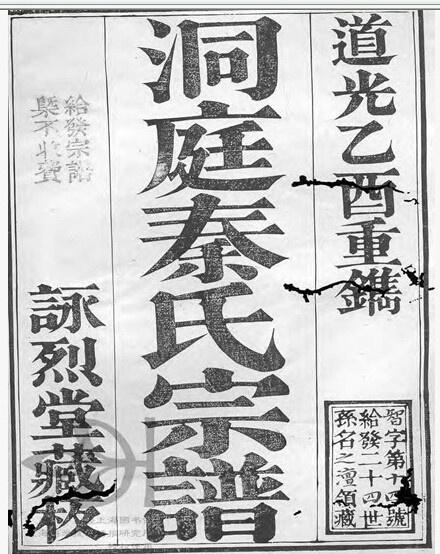 道光乙酉重鐫
智字第十四號
給發二十四世
孫名之澶領藏
洞庭秦氏宗譜
給發宗譜
槩不收費
詠烈堂藏板
上海图书